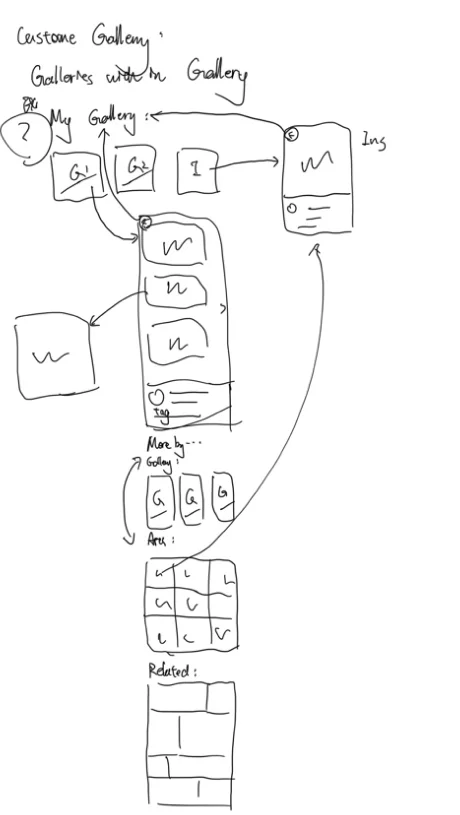 Custome Gallery:
Galleries within Gallery
?
My Gallery:
G1
G2
I
Ins
tag
More by...
Gallery:
G
G
G
Area:
Related: